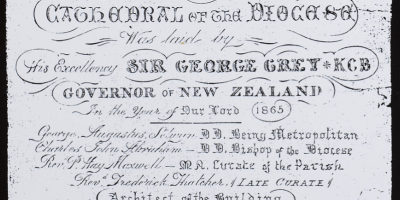 CATHEDRAL of the DIOCESE
Was laid by
His Excellency SIR GEORGE GREY * KCB
GOVERNOR OF NEW ZEALAND
In the Year of Our Lord 1865
George Augustus Selwyn D.D. Being Metropolitan
Charles John Abraham — D.D. Bishop of the Diocese
Rev. P. Hay Maxwell — M.A. Curate of the Parish
Revd. Frederick Thatcher (LATE CURATE)
Architect of the Building